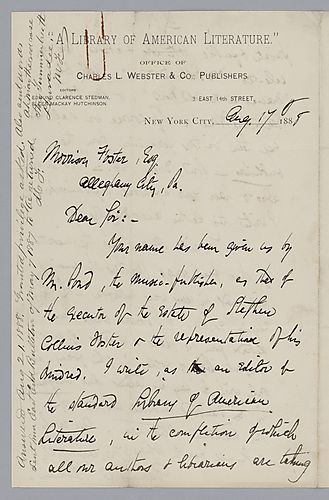 "A LIBRARY OF AMERICAN LITERATURE."
OFFICE OF
CHARLES L. WEBSTER & CO., PUBLISHERS.
EDITORS
EDMUND CLARENCE STEDMAN,
ELLEN MACKAY HUTCHINSON
3 EAST 14TH STREET,
NEW YORK CITY, Aug. 17th 1888
Morrison Foster, Esq.
Allegheny City, Pa.
Dear Sir:—
Your name has been given us by
Mr. Pond, the music-publisher, as that of
the executor of the Estate of Stephen
Collins Foster or the representative of his
kindred. I write, as an Editor of
the standard Library of American
Literature, in the completion of which
all our authors & librarians are taking
Answered Aug 21 1888. Limited privilege accorded.